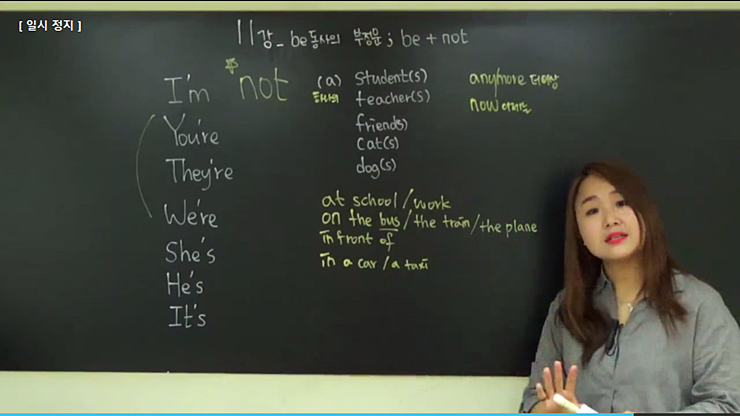 [ 일시 정지 ]
11강_ be동사의 부정문 ; be + not
I'm not (a) student(s) anymore 더이상
teacher(s) now
You're friend(s)
cat(s)
They're dog(s)
We're at school/work
on the bus/the train/the plane
in front of
She's in a car/a taxi
He's
It's